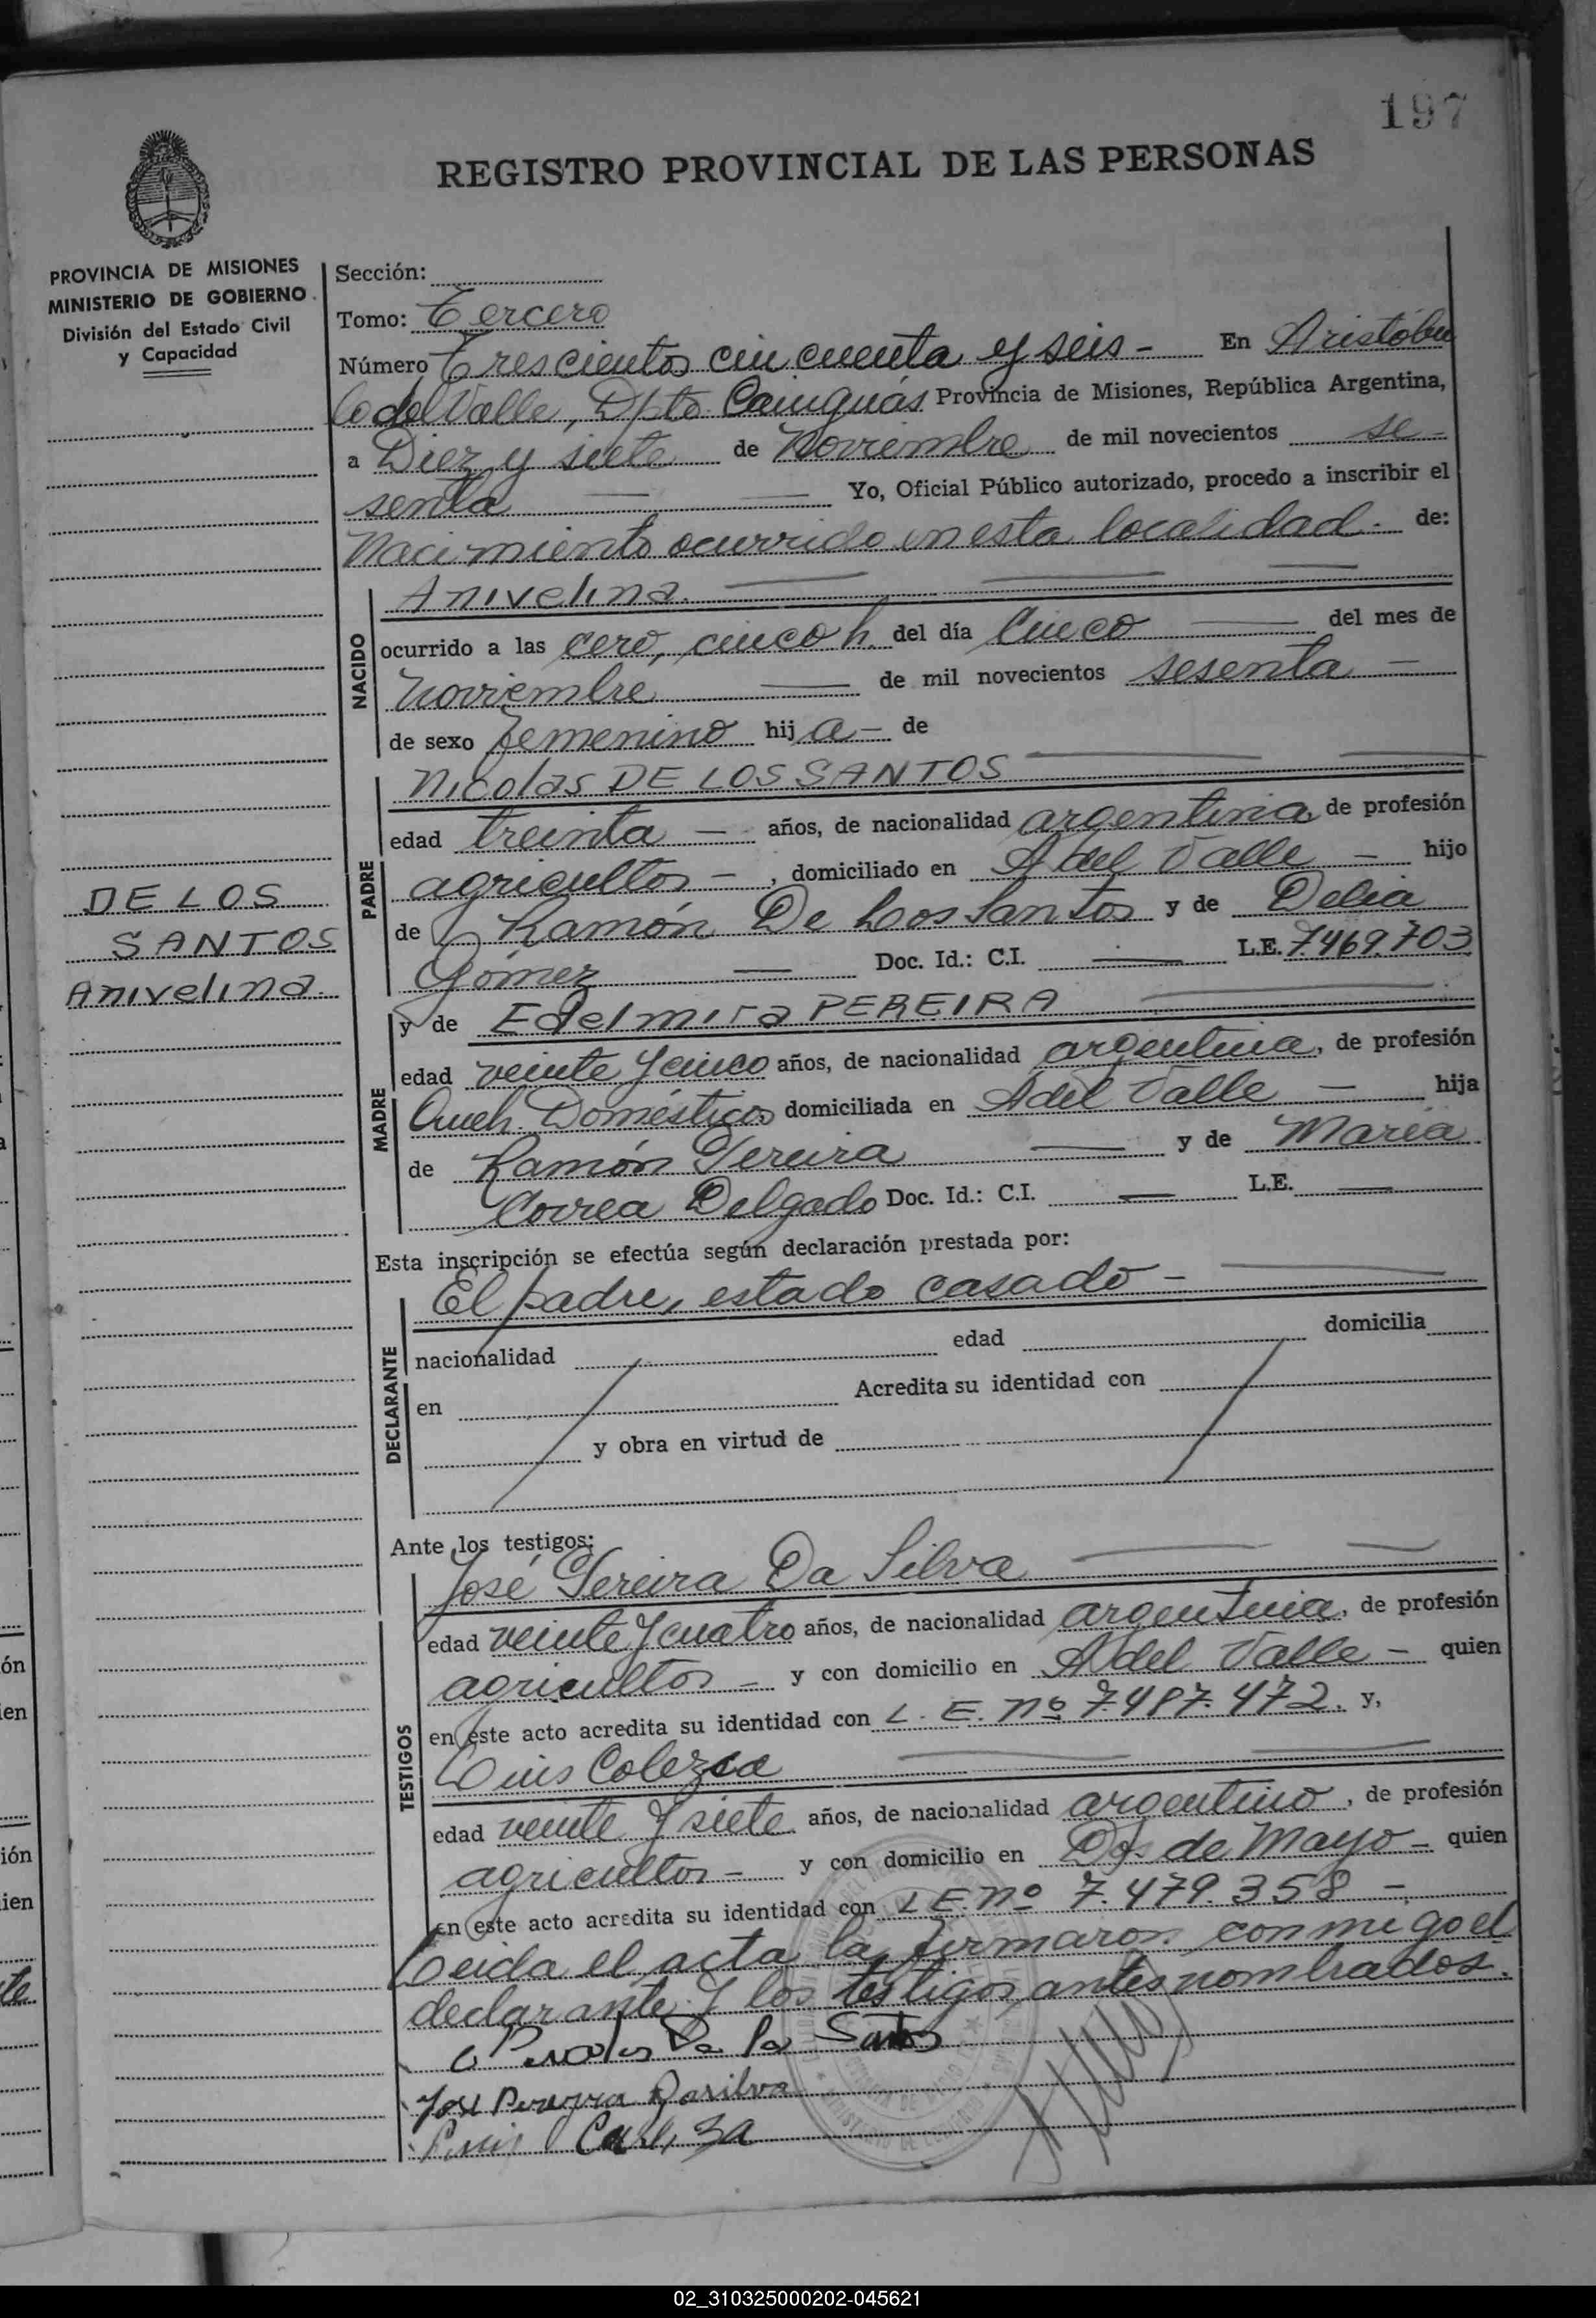 197
REGISTRO PROVINCIAL DE LAS PERSONAS
PROVINCIA DE MISIONES
MINISTERIO DE GOBIERNO
División del Estado Civil
y Capacidad
DE LOS
SANTOS
Anivelina.
Sección:
Tomo: Tercero
Número Trescientos cincuenta y seis - En Aristóbu
lo del Valle, Dpto. Cainguás Provincia de Misiones, República Argentina,
a Diez y siete de Noviembre de mil novecientos se-
senta Yo, Oficial Público autorizado, procedo a inscribir el
Nacimiento ocurrido en esta localidad. de:
NACIDO
Anivelina.
ocurrido a las cero, cinco h. del día Cinco del mes de
Noviembre de mil novecientos sesenta -
de sexo femenino hij a - de
PADRE
Nicolas DE LOS SANTOS
edad treinta - años, de nacionalidad argentina, de profesión
agricultor -, domiciliado en A del Valle - hijo
de Ramón De Los Santos y de Delia
Gómez Doc. Id.: C.I. L.E. 7.469.703
MADRE
y de Edelmira PEREIRA
edad veinte y cinco años, de nacionalidad argentina, de profesión
Queh. Domésticos domiciliada en A del Valle - hija
de Ramón Pereira y de María
Correa Delgado Doc. Id.: C.I. L.E.
Esta inscripción se efectúa según declaración prestada por:
DECLARANTE
El padre, estado casado -
nacionalidad edad domicilia
en Acredita su identidad con
y obra en virtud de
Ante los testigos:
TESTIGOS
José Pereira Da Silva
edad veinte y cuatro años, de nacionalidad argentina, de profesión
agricultor - y con domicilio en A del Valle - quien
en este acto acredita su identidad con L. E. Nº 7.487.472. y,
Luis Colezca
edad veinte y siete años, de nacionalidad argentino, de profesión
agricultor - y con domicilio en Dos de Mayo - quien
en este acto acredita su identidad con L E. nº 7.479.358 -
Leida el acta la firmaron conmigo el
declarante y los testigos antes nombrados.
De la Santos
Jose Pereyra Dasilva
Luis
02_310325000202-045621